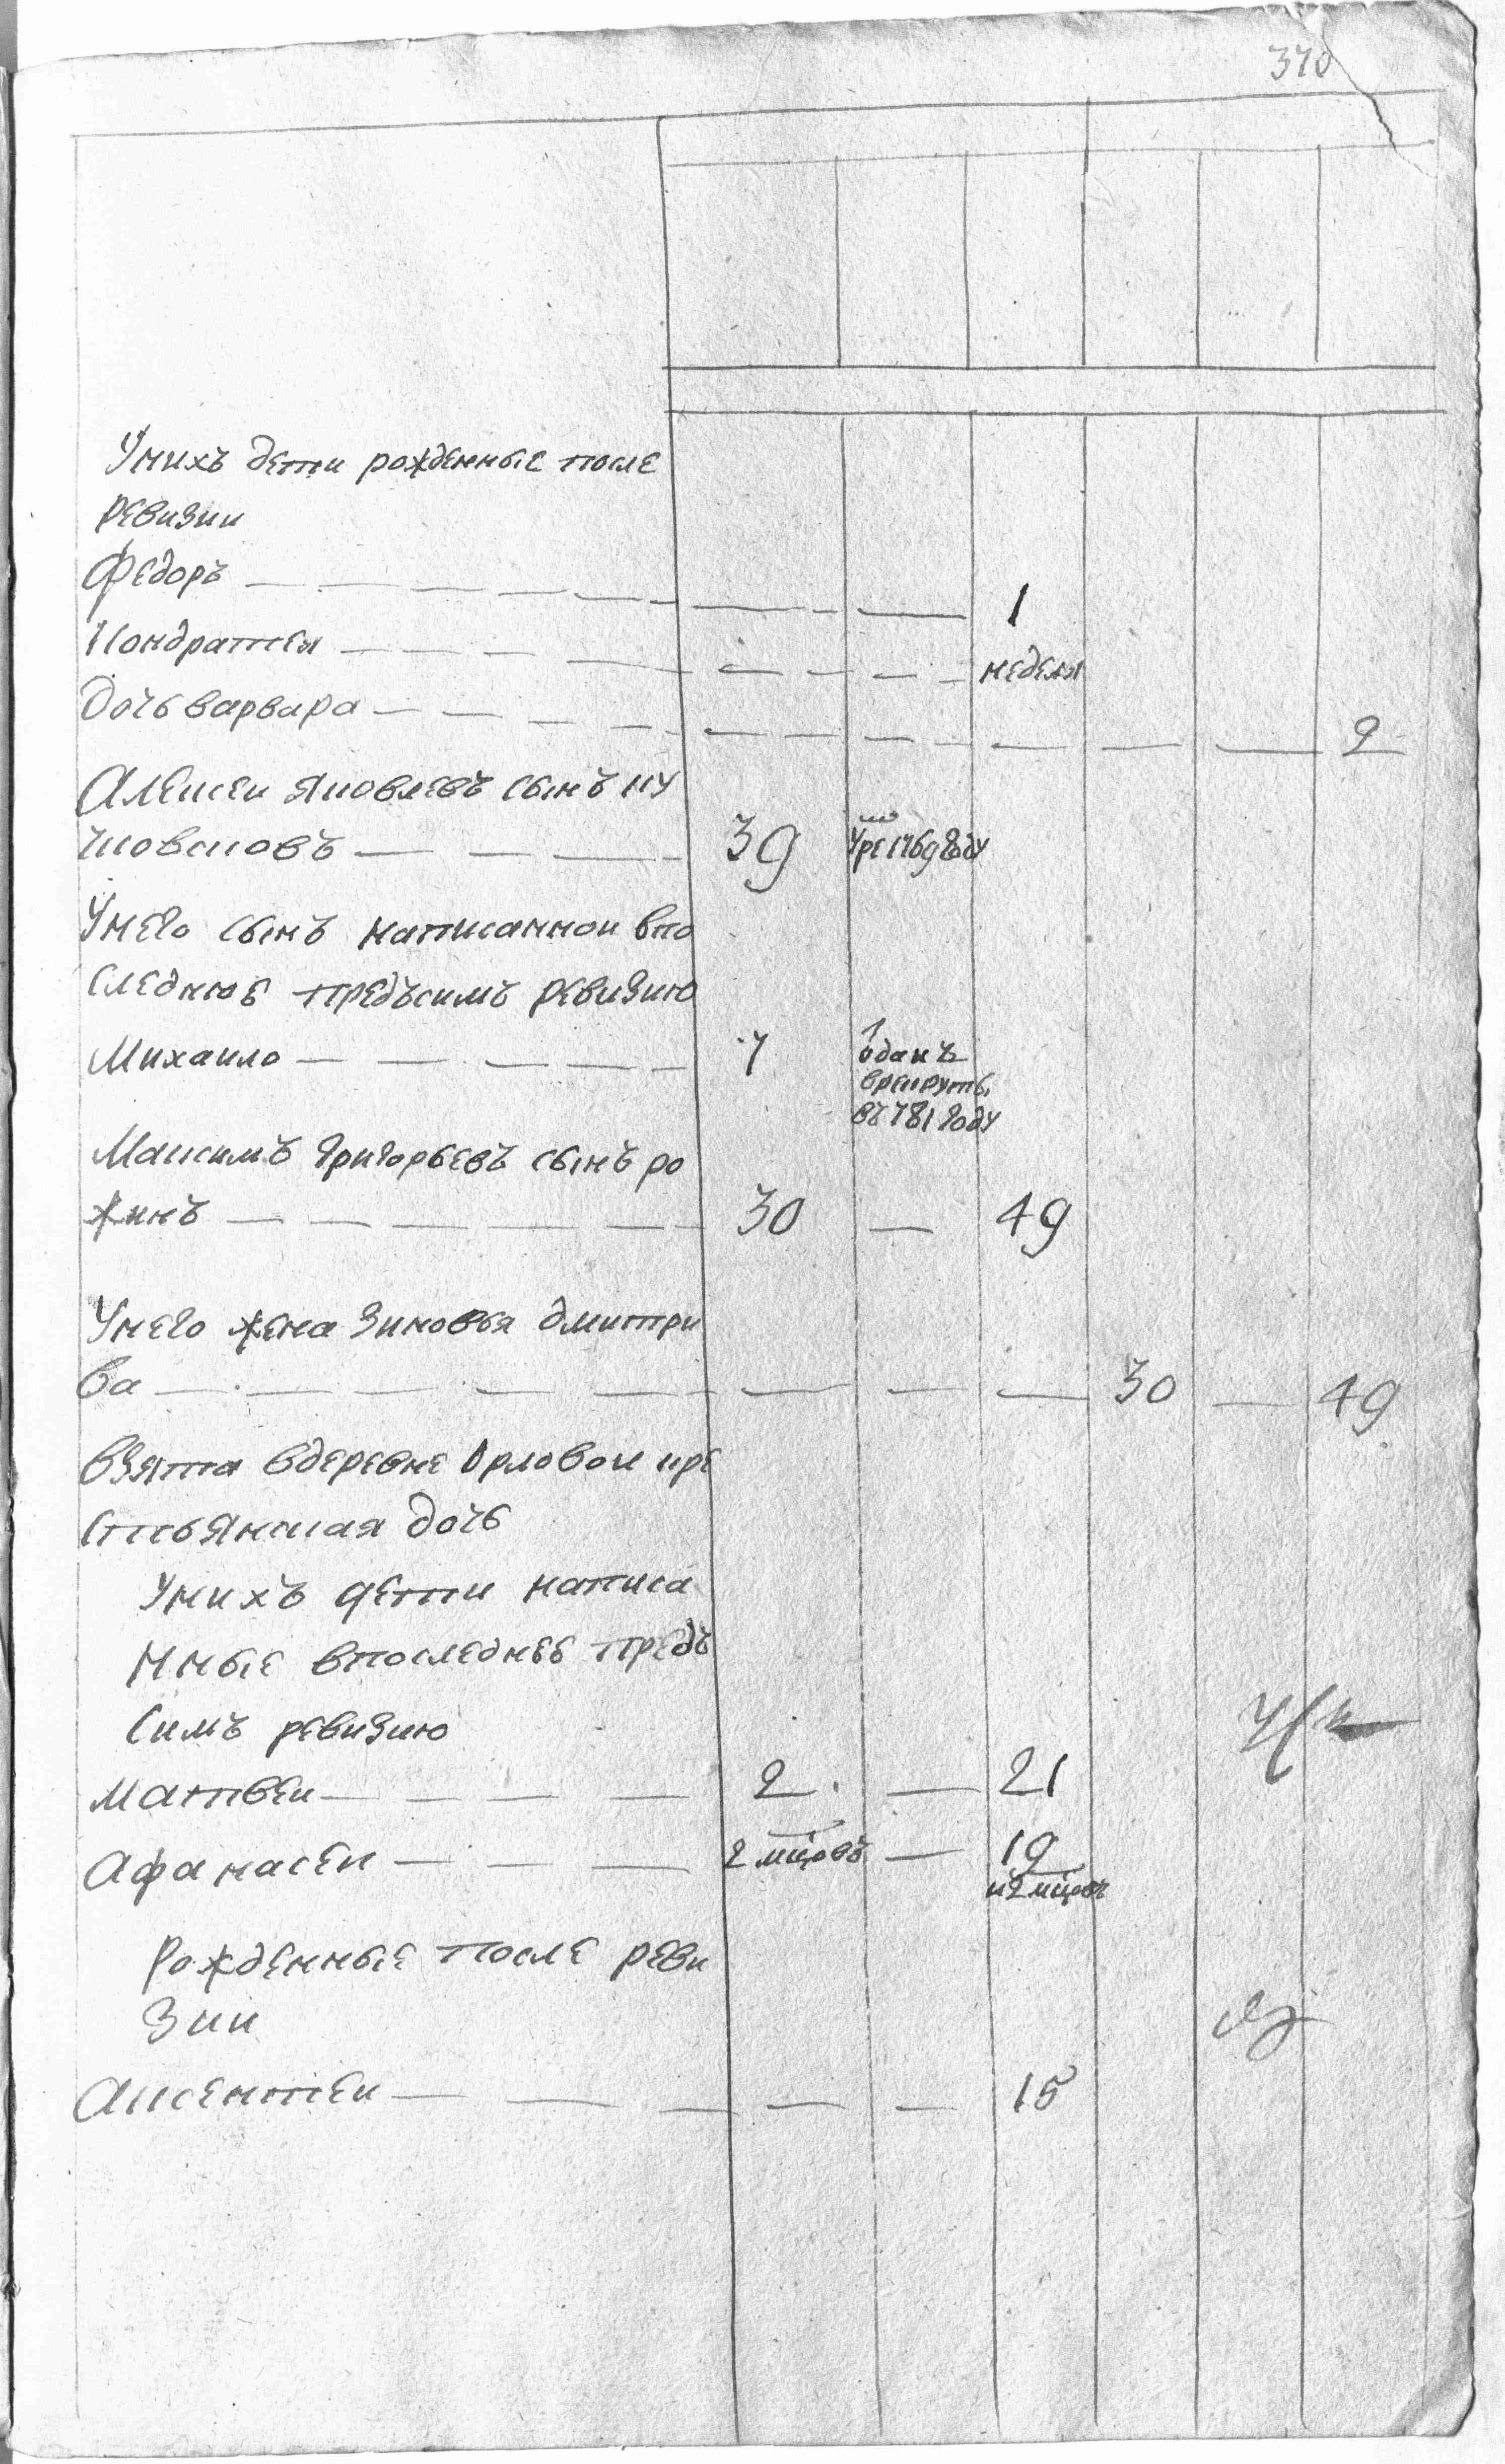 370
Унихъ дети рожденные после
ревизии
Федоръ — — — 1
Кондратеи — — — неделя
Дочь варвара — — — 2
Алексеи яковлевъ сынъ ку
39 Уре 1769 году
Унего сынъ написанной впо
следнюе предъсимъ ревизию
Михаило — — — 7 одан въ
врекруты
въ 781 году
Максимъ григорьевъ сынъ ро
жинъ — — — 30 — 49
Унего жена зиновья дмитри
ва — — — 30 — 49
взята вдеревне Орловои кре
стьянская дочь
Унихъ дети написа
нные впоследнее предъ
симъ ревизию
матвеи — — — 2 — 21
Афанасеи — — — 2 мцовъ — 19
и 2 мцовъ
Рожденные после реви
зии
Аксентеи — — — 15